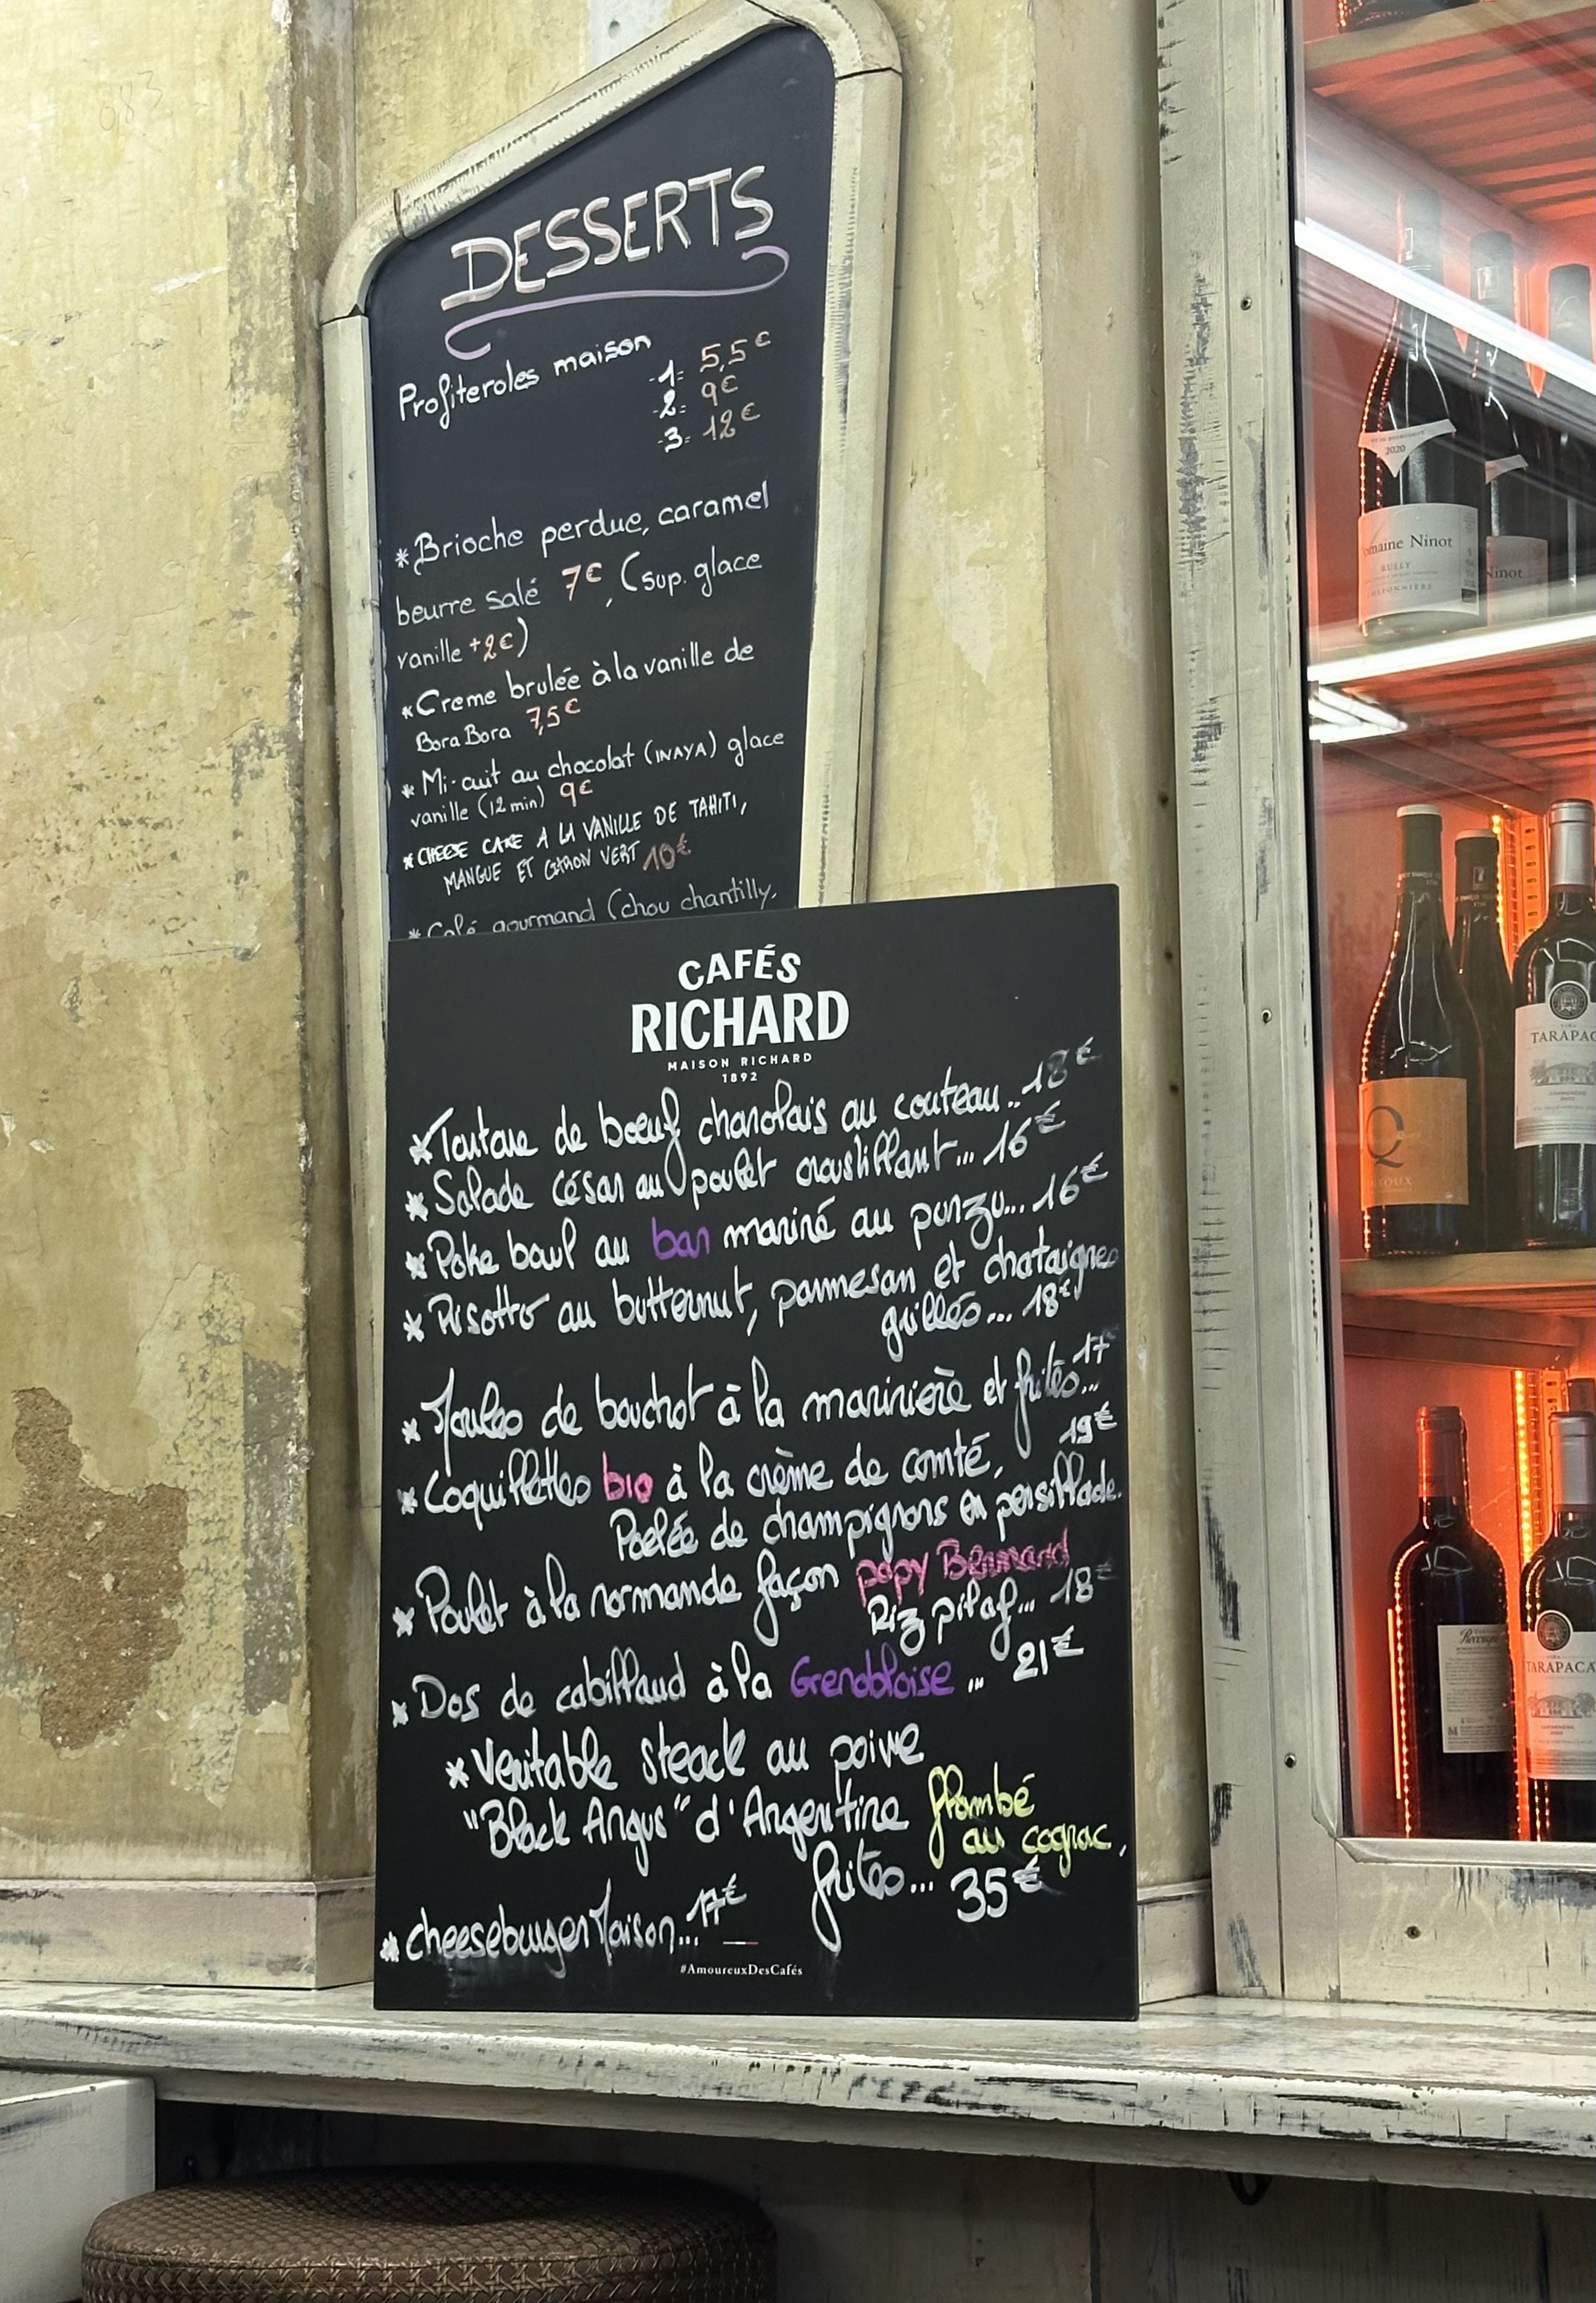 DESSERTS
Profiteroles maison
-1= 5,5€
-2= 9€
-3= 12€
*Brioche perdue, caramel
beurre salé 7€, (sup. glace
vanille +2€)
*Creme brulée à la vanille de
Bora Bora 7,5€
* Mi-cuit au chocolat (INAYA) glace
vanille (12 min) 9€
*CHEESE CAKE A LA VANILLE DE TAHITI,
MANGUE ET CITRON VERT 10€
* Café gourmand (chou chantilly,
CAFÉS
RICHARD
MAISON RICHARD
1892
*Tartare de bœuf charolais au couteau..18€
*Salade césar au poulet croustillant... 16€
*Poke bowl au bar mariné au ponzu... 16€
*Risotto au butternut, parmesan et chataignes
grillés... 18€
*Moules de bouchot à la marinière et frites... 17
*Coquillettes bio à la crème de comté, 19€
Poelée de champignons en persillade.
*Poulet à la normande façon papy Bernard
Riz pilaf... 18€
*Dos de cabillaud à la Grenobloise ... 21€
*Veritable steack au poivre
"Black Angus" d'Argentine flambé
au cognac,
frites... 35€
*cheeseburger Maison... 17€
#AmoureuxDesCafés
2020
Domaine Ninot
RULLY
Ninot
Q
TARAPAC
TARAPACA